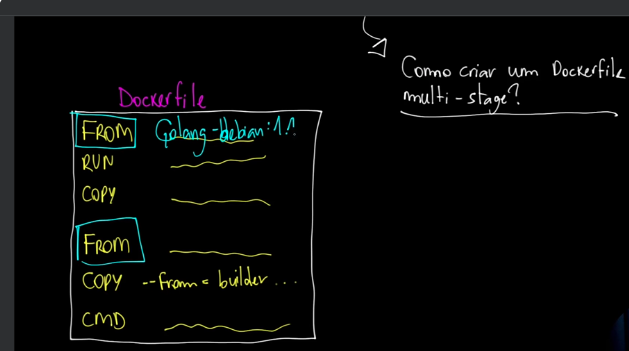 Como criar um Dockerfile
multi-stage?
Dockerfile
FROM Golang-debian:1.
RUN
COPY
FROM
COPY --from= builder ...
CMD